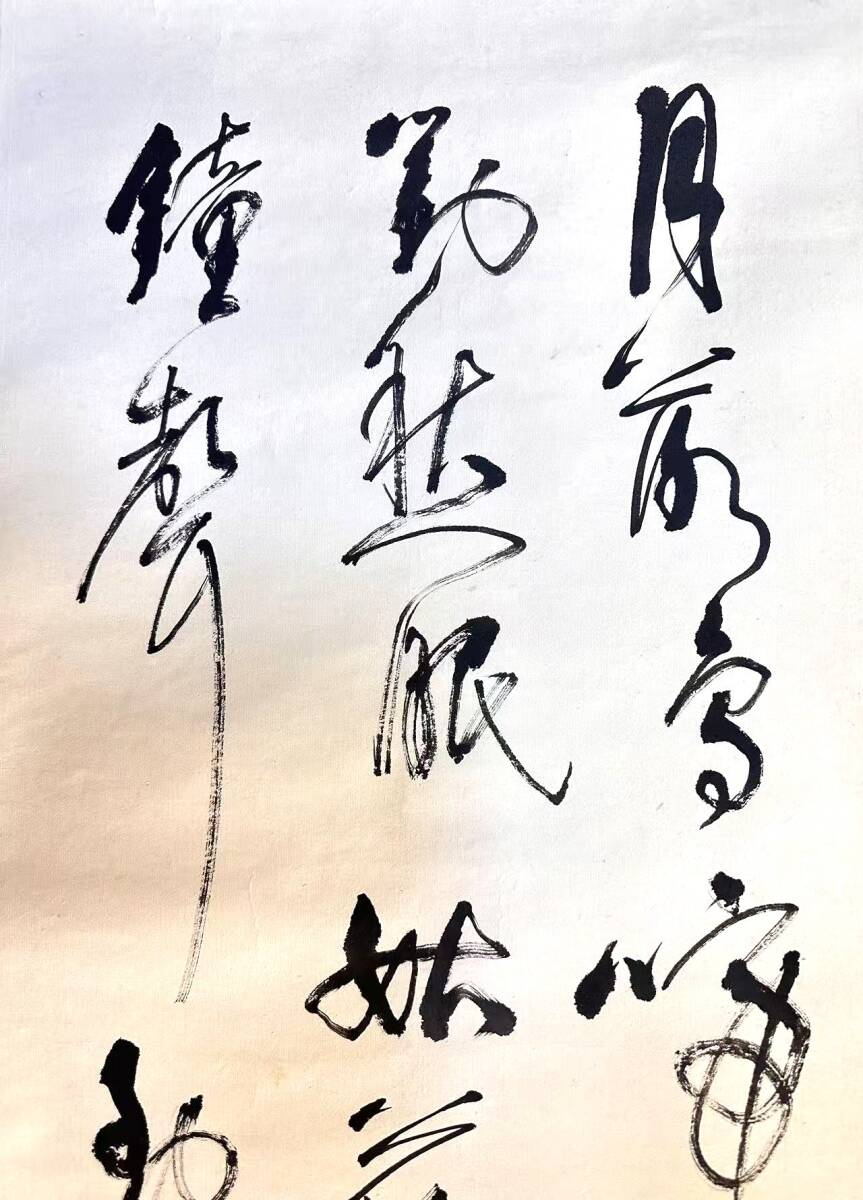 月落烏啼
對愁眠姑蘇
鐘聲到